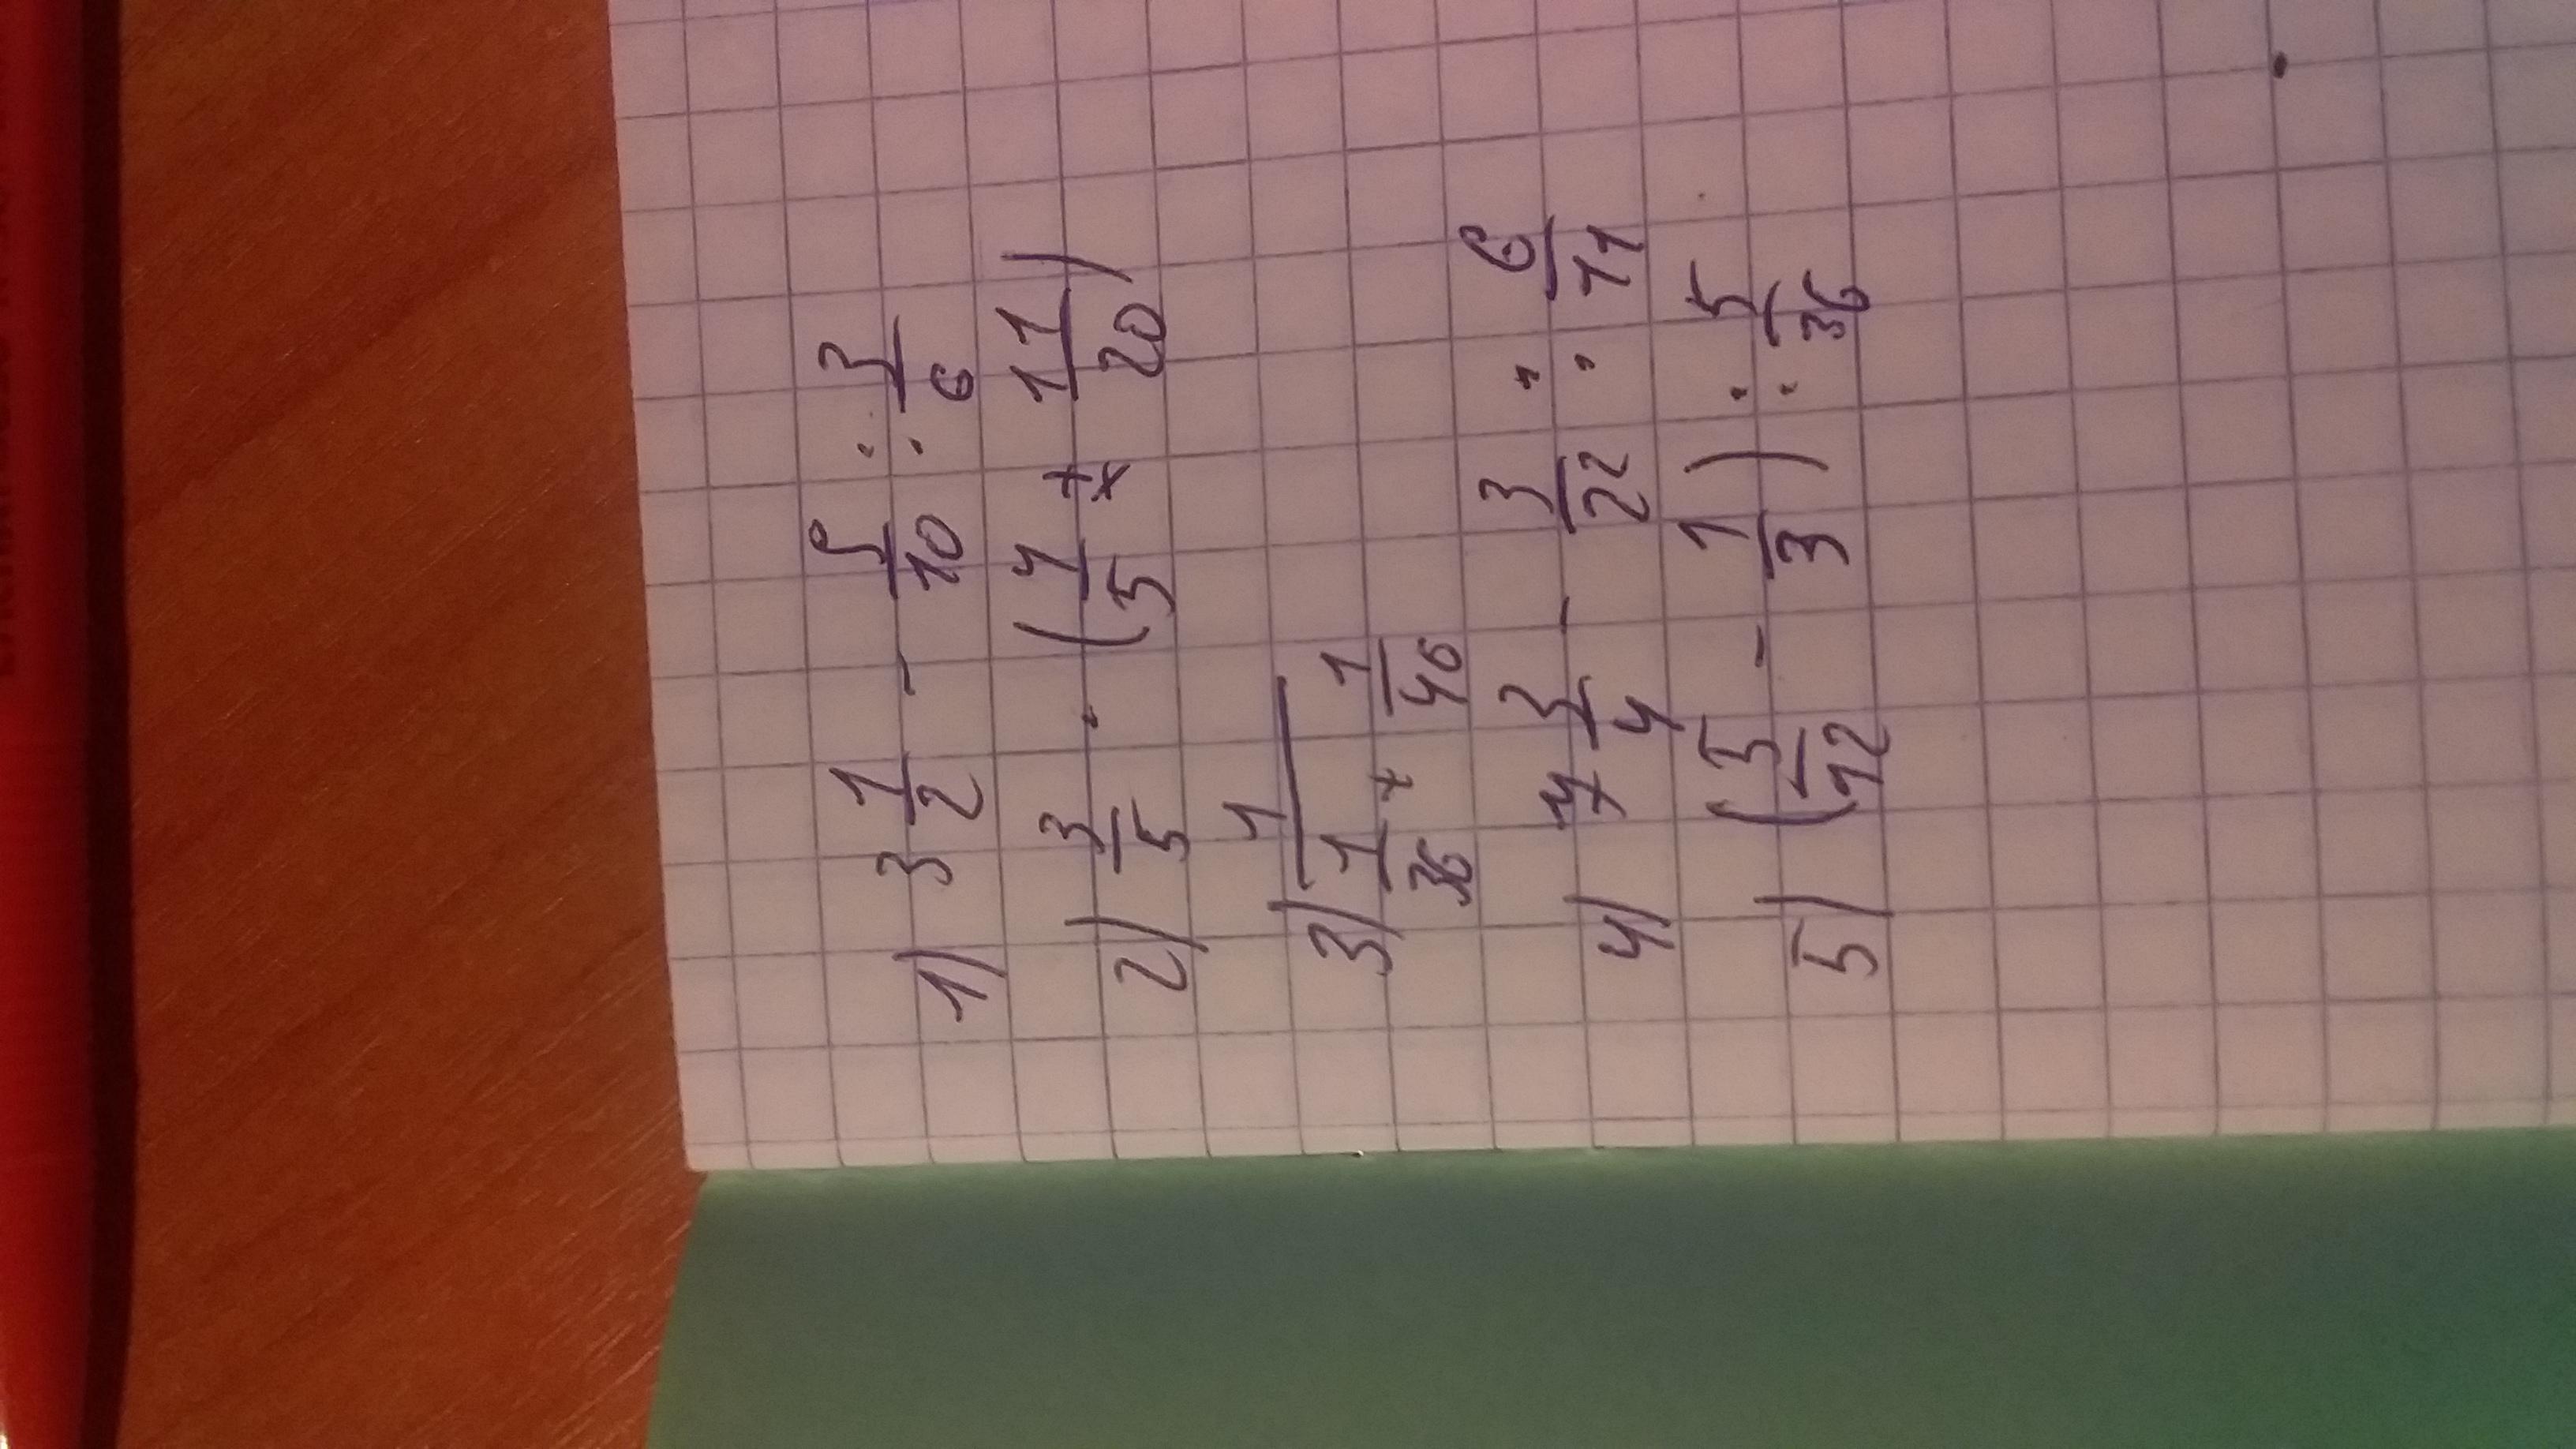 1) 3 1/2 - 9/10 : 3/6
2) 3/5 · (4/5 + 11/20)
3) 1/(1/36 + 1/46)
4) 4 3/4 - 3/22 : 6/11
5) (5/12 - 1/3) : 5/36